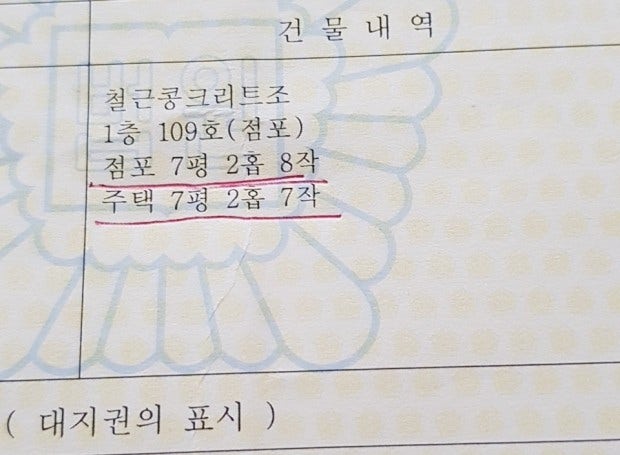 건 물 내 역
철근콩크리트조
1층 109호(점포)
점포 7평 2홉 8작
주택 7평 2홉 7작
( 대지권의 표시 )